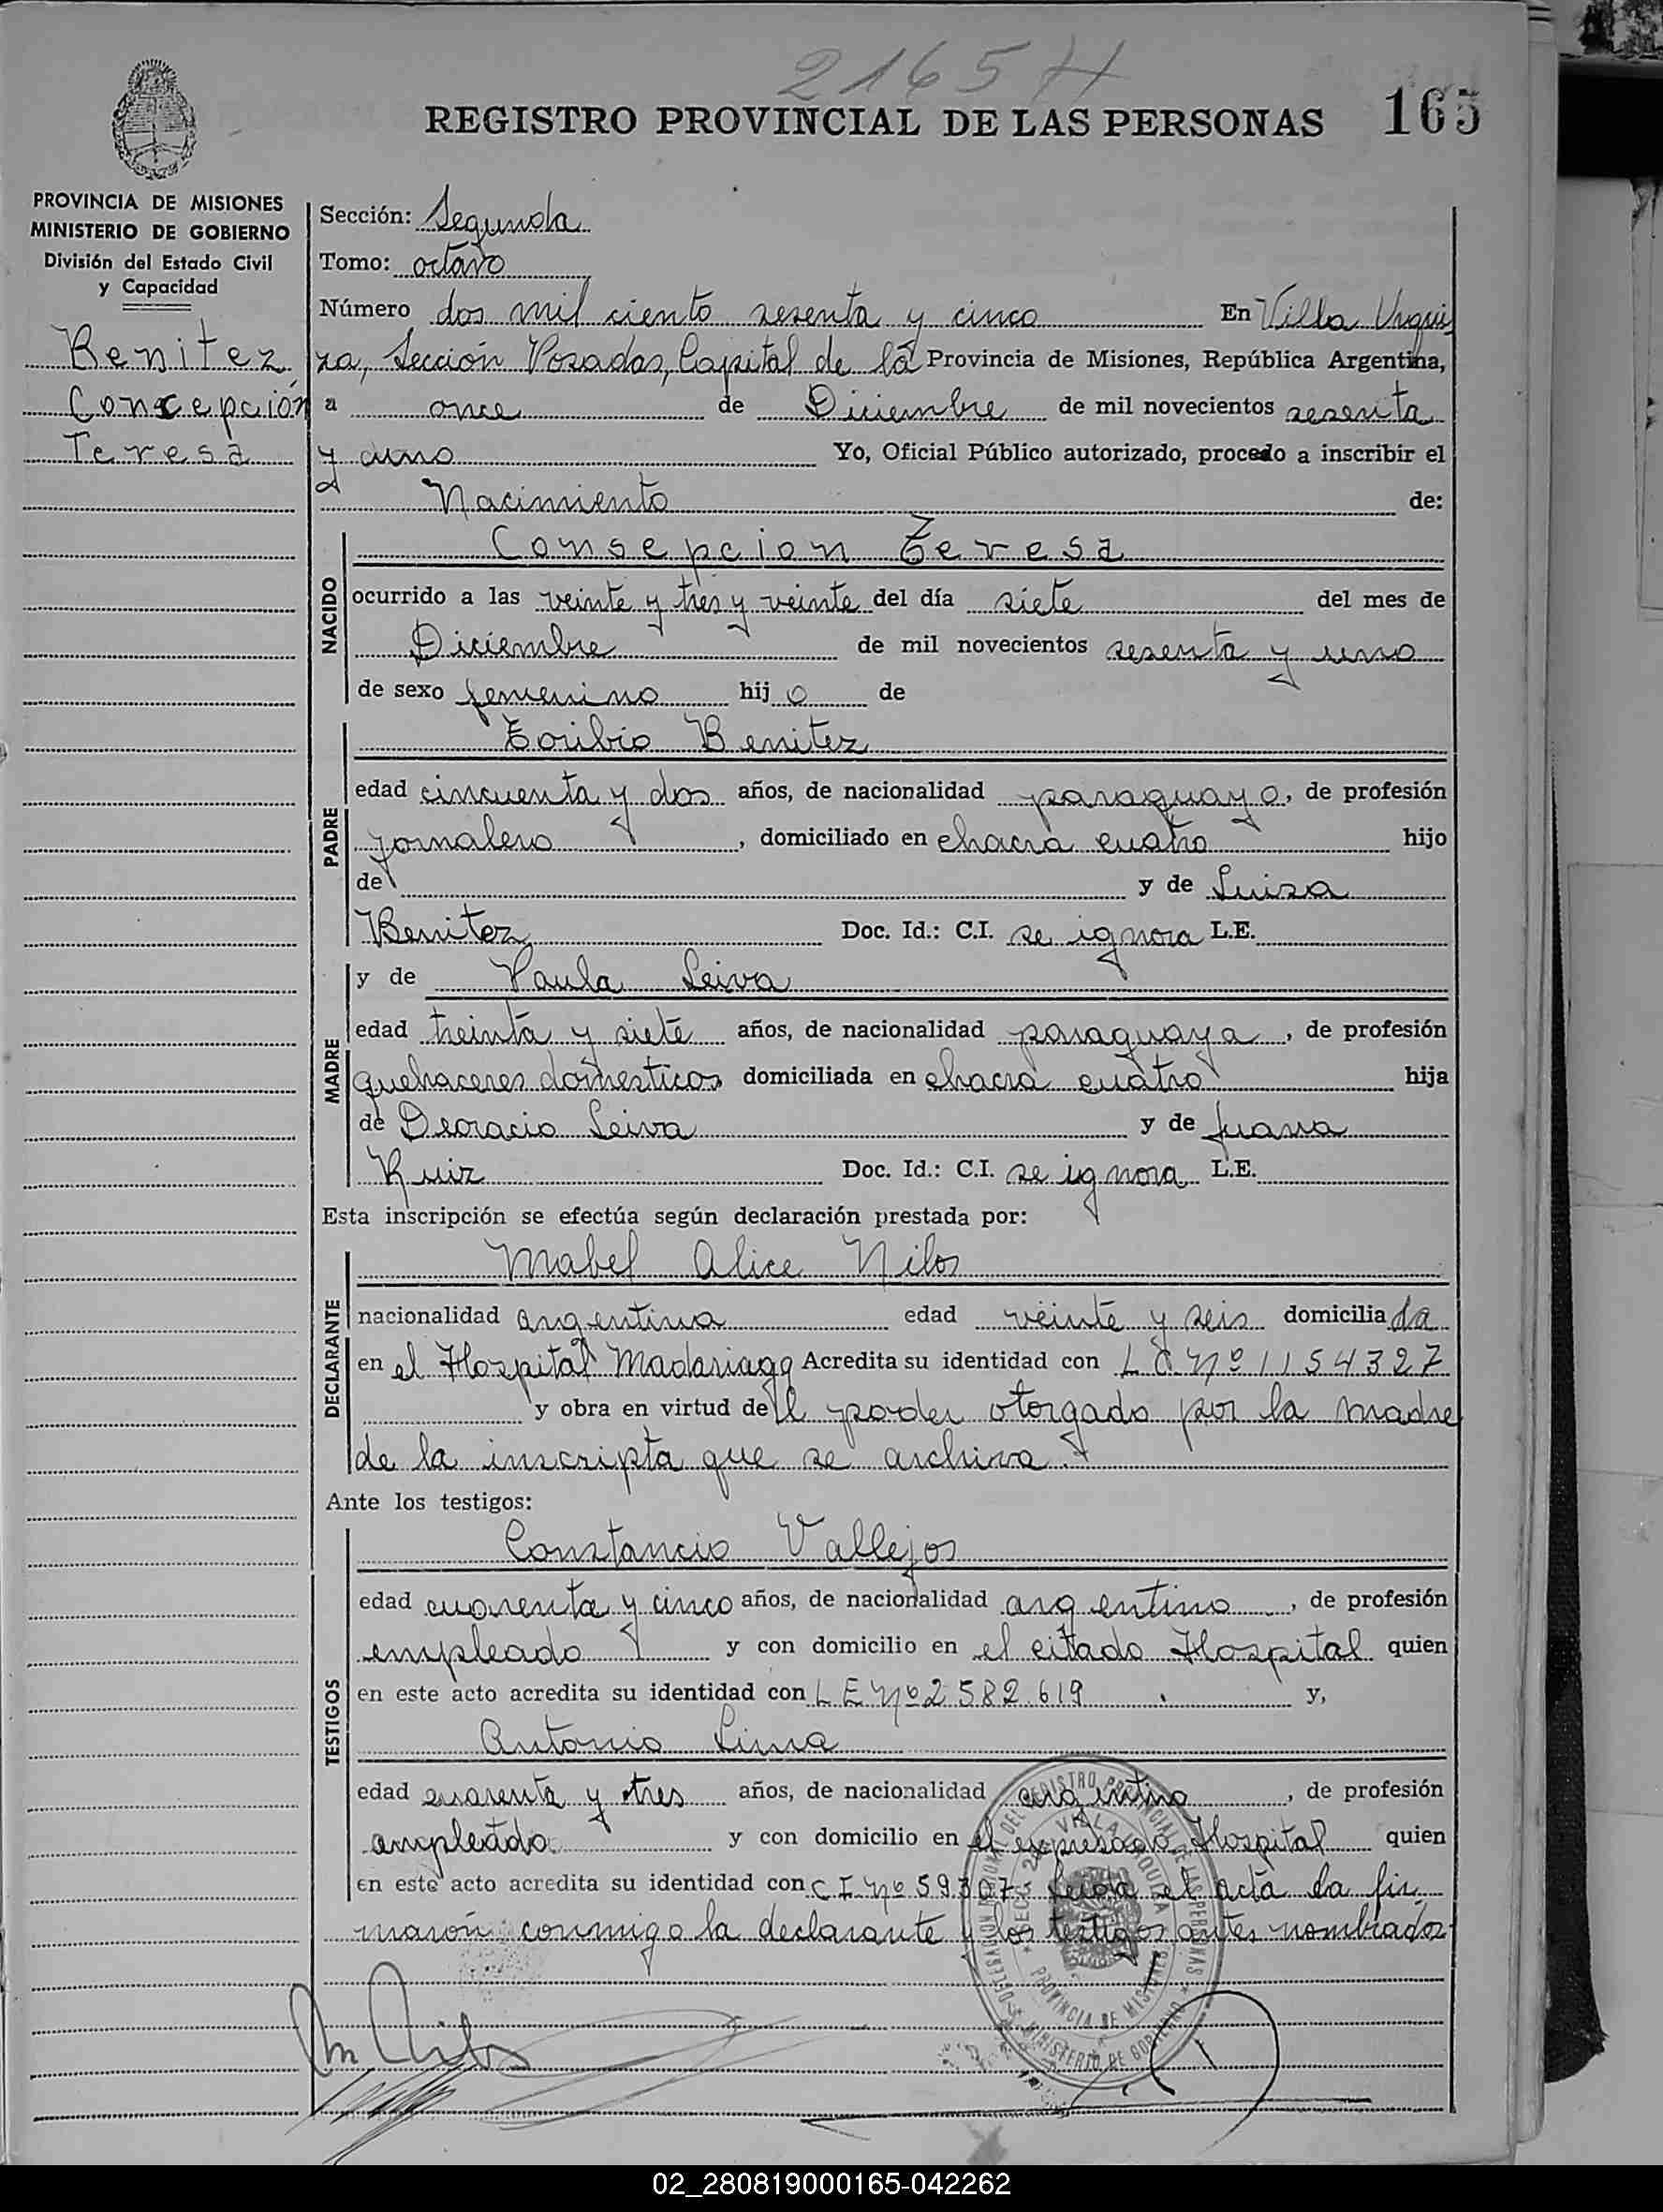 2165 H
REGISTRO PROVINCIAL DE LAS PERSONAS 165
PROVINCIA DE MISIONES
MINISTERIO DE GOBIERNO
División del Estado Civil
y Capacidad
Benitez
Concepción
Teresa
Sección: Segunda
Tomo: octavo
Número dos mil ciento sesenta y cinco En Villa Urqui
za, Sección Posadas, Capital de la Provincia de Misiones, República Argentina,
a once de Diciembre de mil novecientos sesenta
y uno Yo, Oficial Público autorizado, procedo a inscribir el
Nacimiento de:
NACIDO
Consepcion Teresa
ocurrido a las veinte y tres y veinte del día siete del mes de
Diciembre de mil novecientos sesenta y uno
de sexo femenino hij o de
PADRE
Toribio Benitez
edad cincuenta y dos años, de nacionalidad paraguayo, de profesión
jornalero, domiciliado en chacra cuatro hijo
de y de Luisa
Benitez Doc. Id.: C.I. se ignora L.E.
MADRE
y de Paula Leiva
edad treinta y siete años, de nacionalidad paraguaya, de profesión
quehaceres domesticos domiciliada en chacra cuatro hija
de Deoracio Leiva y de Juana
Ruiz Doc. Id.: C.I. se ignora L.E.
Esta inscripción se efectúa según declaración prestada por:
DECLARANTE
Mabel Alice Nilos
nacionalidad argentina edad veinte y seis domicilia da
en el Hospital Madariaga Acredita su identidad con L C Nº 1154327
y obra en virtud de l poder otorgado por la madre
de la inscripta que se archiva.
Ante los testigos:
TESTIGOS
Constancio Vallejos
edad cuarenta y cinco años, de nacionalidad argentino, de profesión
empleado y con domicilio en el citado Hospital quien
en este acto acredita su identidad con L E Nº 2582619 y,
Antonio Lima
edad cuarenta y tres años, de nacionalidad argentino, de profesión
empleado y con domicilio en el expresado Hospital quien
en este acto acredita su identidad con C I Nº 59307. Leida el acta la fir
marón conmigo la declarante y los testigos antes nombrados
REGISTRO PROVINCIAL DE LAS PERSONAS
VILLA URQUIZA
PROVINCIA DE MISIONES
MINISTERIO DE GOBIERNO
02_280819000165-042262